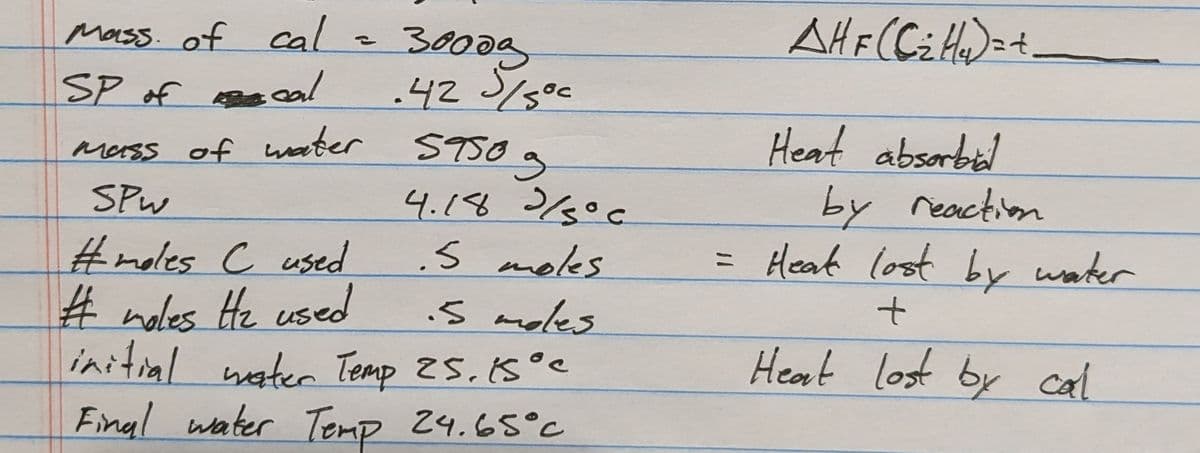 Mass. of cal = 3000g
SP of cal .42 J/g°c
mass of water 5950 g
SPw 4.18 J/g°c
# moles C used .5 moles
# moles H2 used .5 moles
initial water Temp 25.15°c
Final water Temp 24.65°c
ΔHF(C2H4)=+___
Heat absorbed
by reaction
= Heat lost by water
+
Heat lost by cal